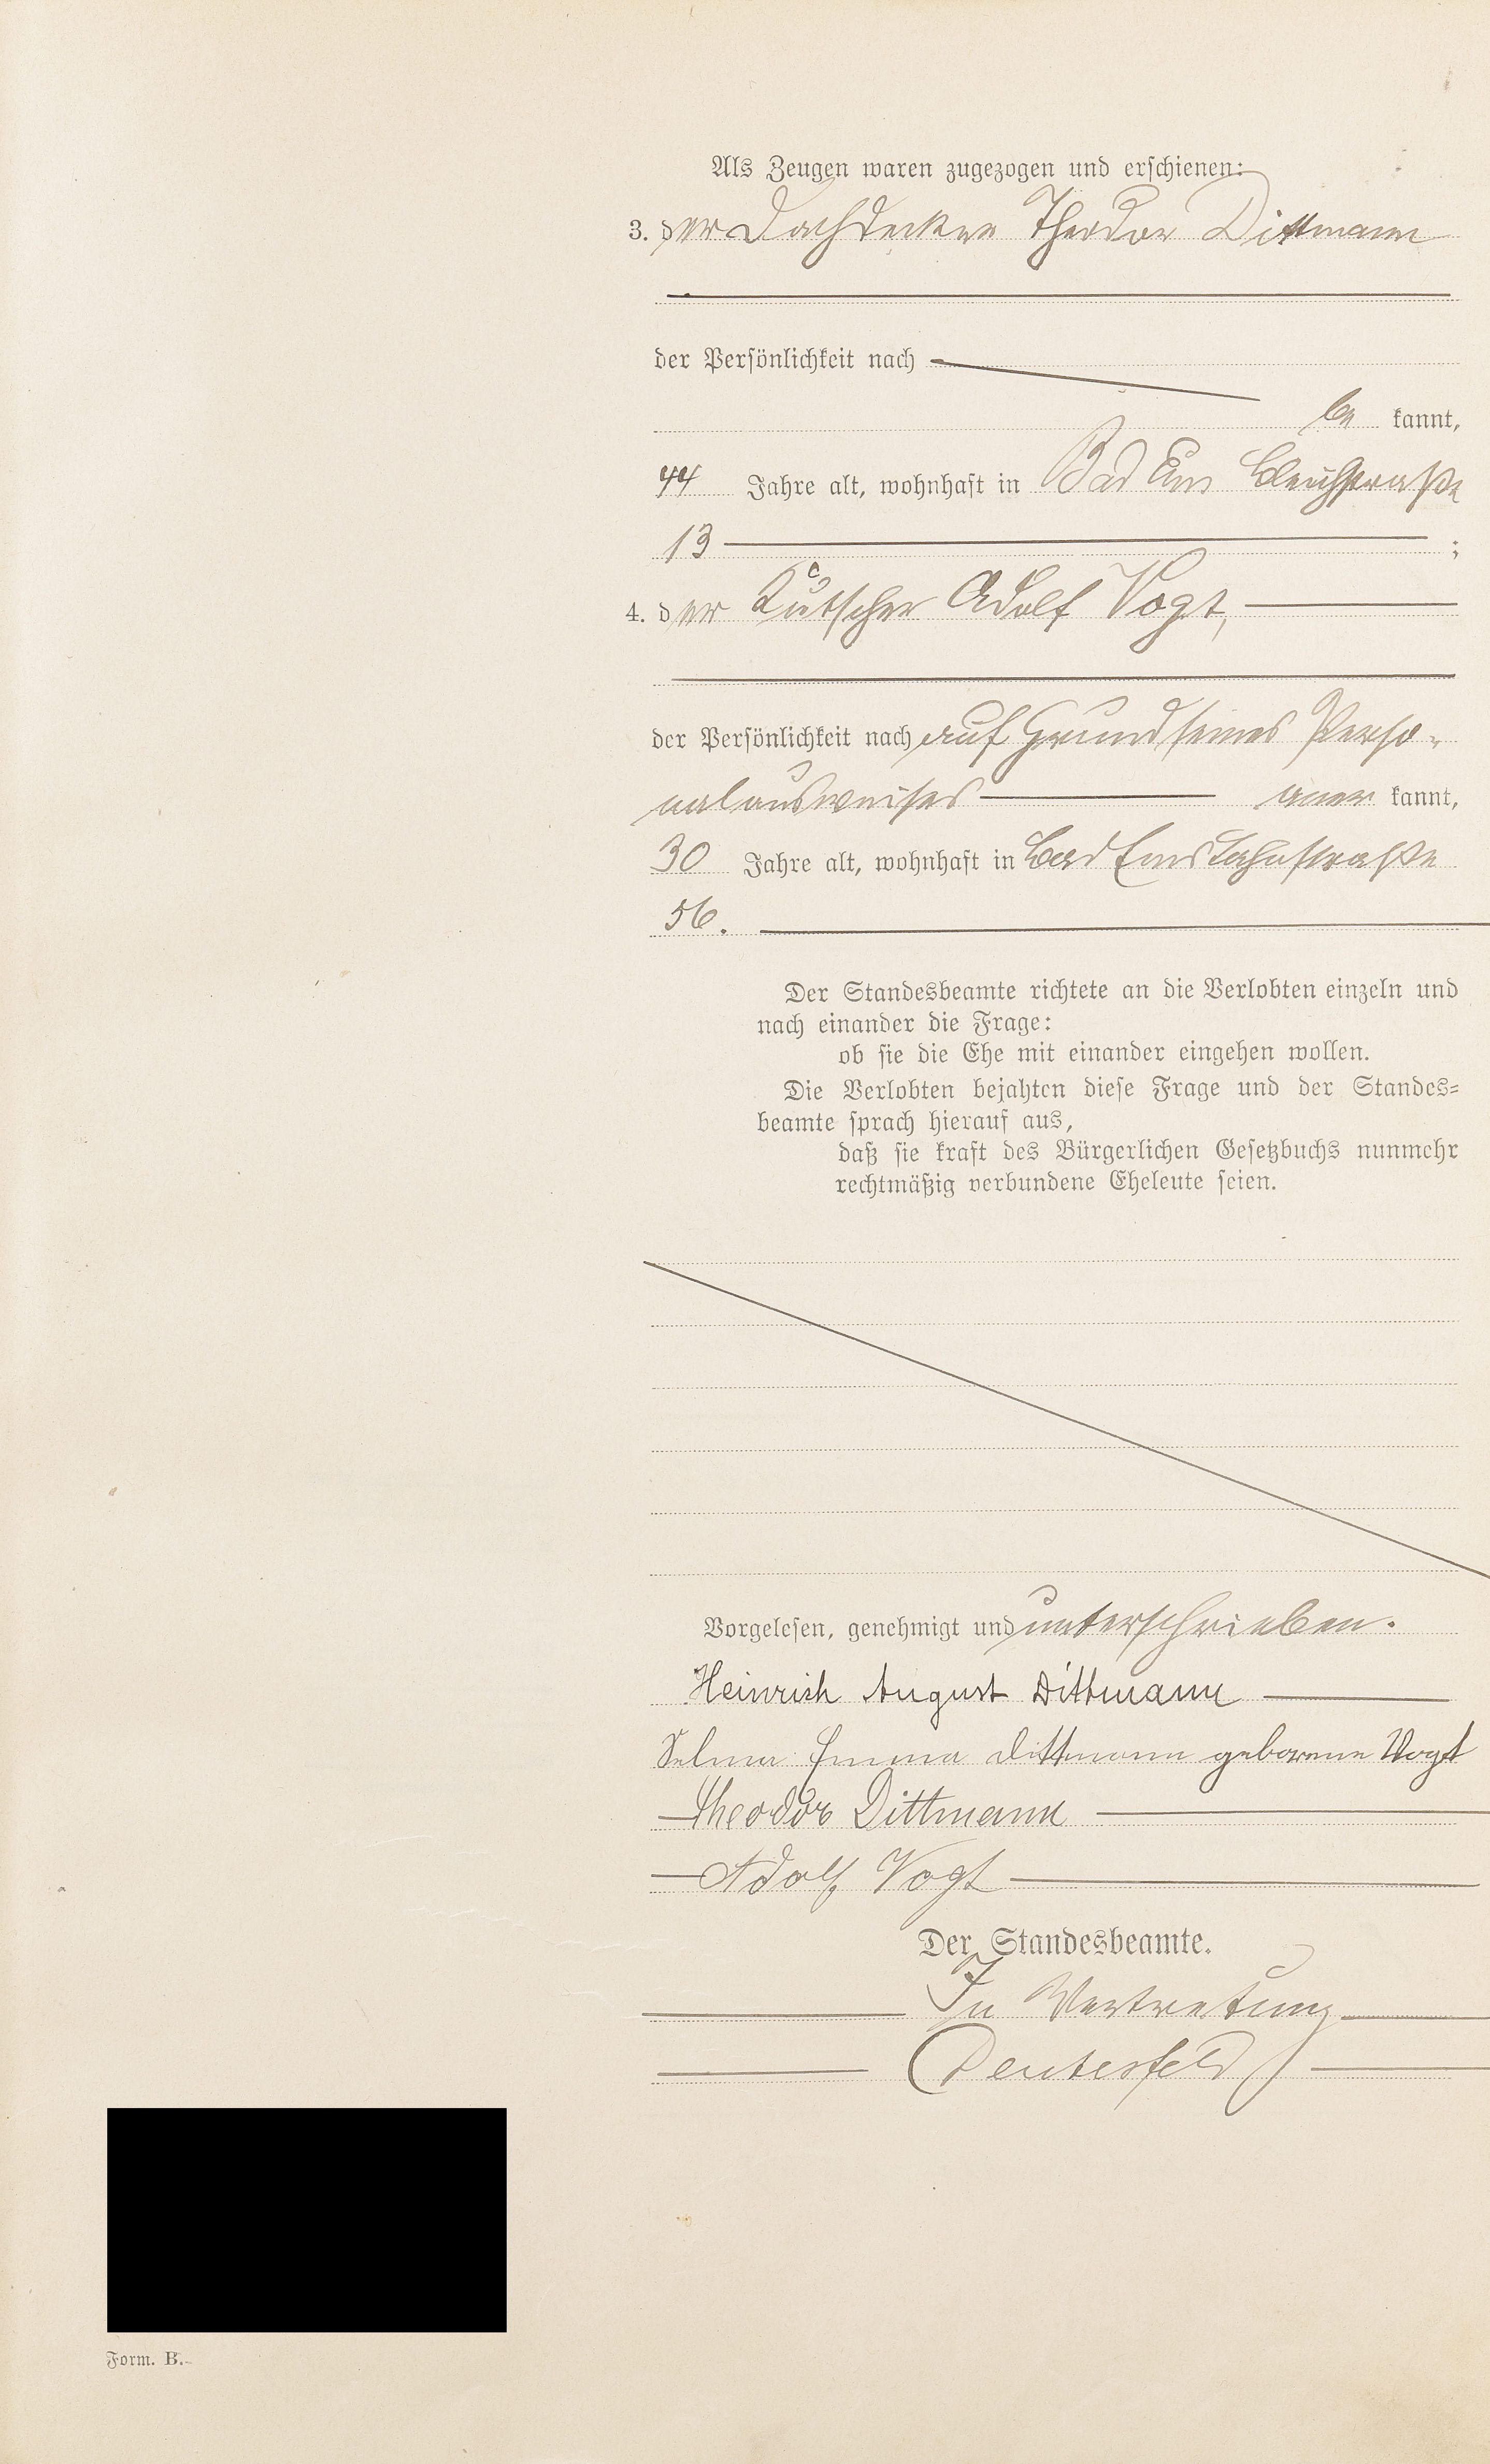 Als Zeugen waren zugezogen und erschienen:
3. der Dachdecker Theodor Dittmann
der Persönlichkeit nach
be kannt,
44 Jahre alt, wohnhaft in Bad Ems Bleichstraße
13 ;
4. der Kutscher Adolf Vogt,
der Persönlichkeit nach auf Grund seines Perso-
nalausweises aner kannt,
30 Jahre alt, wohnhaft in Bad Ems Lahnstraße
56.
Der Standesbeamte richtete an die Verlobten einzeln und
nach einander die Frage:
ob sie die Ehe mit einander eingehen wollen.
Die Verlobten bejahten diese Frage und der Standes-
beamte sprach hierauf aus,
daß sie kraft des Bürgerlichen Gesetzbuchs nunmehr
rechtmäßig verbundene Eheleute seien.
Vorgelesen, genehmigt und unterschrieben.
Heinrich August Dittmann
Selma Emma Dittmann geborene Vogt
Theodor Dittmann
Adolf Vogt
Der Standesbeamte.
In Vertretung
Form. B.